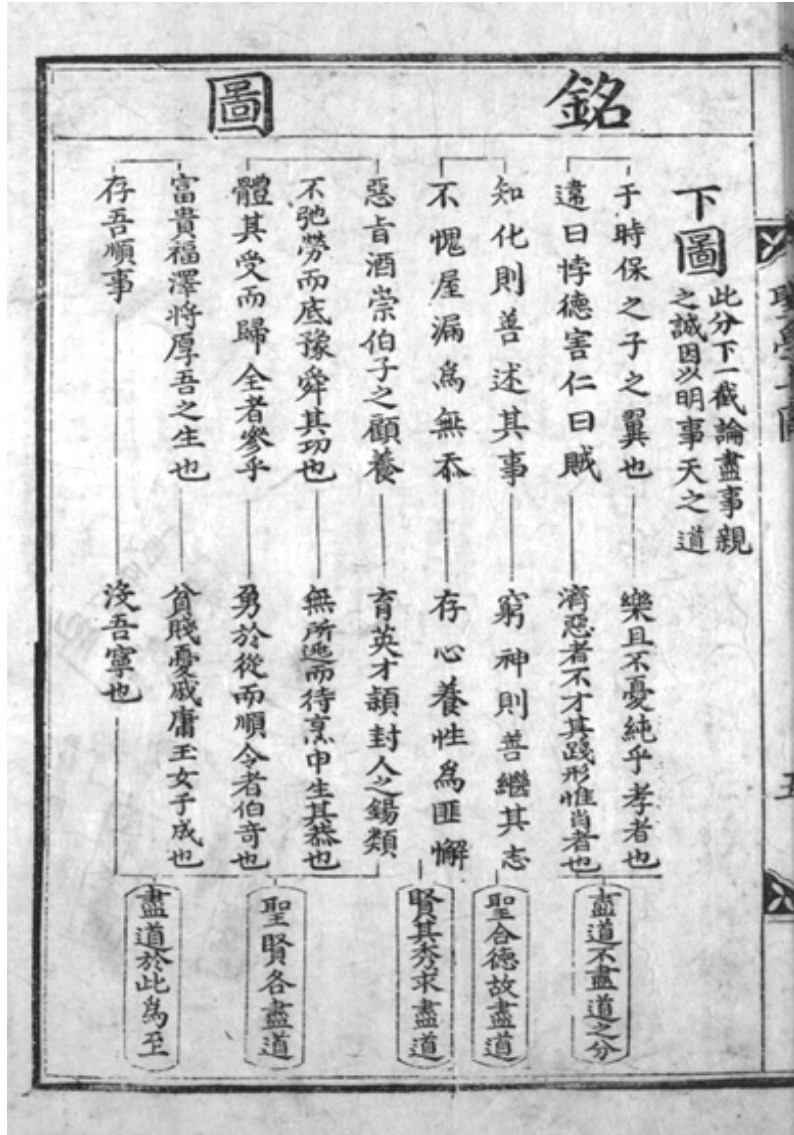 銘圖
下圖
此分下一截論盡事親
之誠因以明事天之道
于時保之子之翼也
樂且不憂純乎孝者也
違曰悖德害仁曰賊
濟惡者不才其踐形惟肖者也
盡道不盡道之分
知化則善述其事
窮神則善繼其志
聖合德故盡道
不愧屋漏爲無忝
存心養性爲匪懈
賢其秀求盡道
惡旨酒崇伯子之顧養
育英才頴封人之錫類
不弛勞而底豫舜其功也
無所逃而待烹申生其恭也
體其受而歸全者參乎
勇於從而順令者伯奇也
聖賢各盡道
富貴福澤將厚吾之生也
貧賤憂戚庸玉女于成也
存吾順事
沒吾寧也
盡道於此爲至